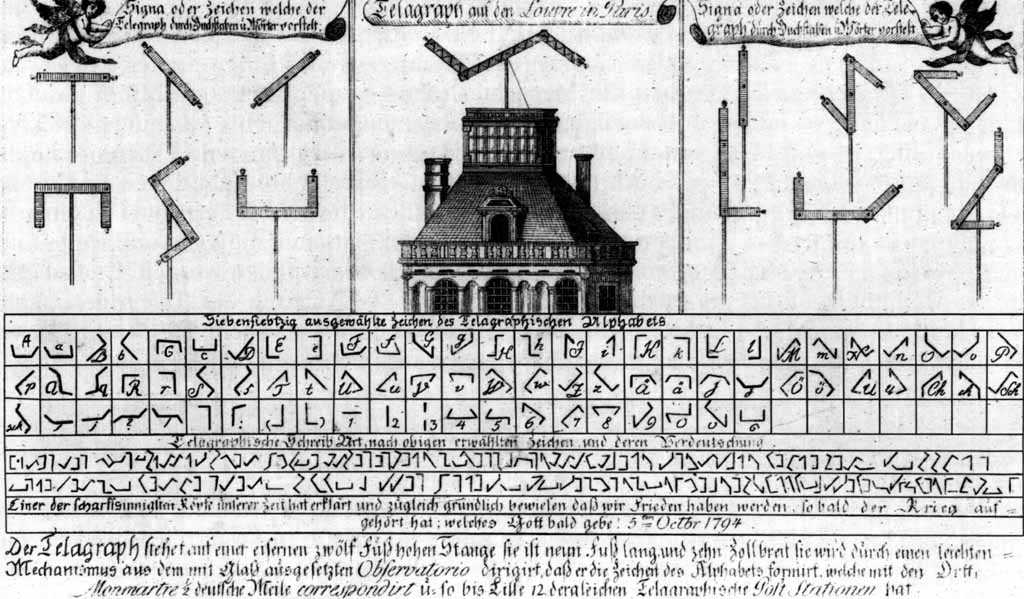 Signa oder Zeichen welche der
Telegraph durch Buchstaben u. Wörter vorstelt.
Telagraph auf den Louvre in Paris.
Signa oder Zeichen welche der Tele-
graph durch Buchstaben u Wörter vorstelt.
Siebensiebtzig ausgewählte Zeichen des Telagraphischen Alphabets.
A a B b C c D E e F f G g H h I i K k L l M m N n O o P
p Q q R r S s T t U u V v W w X x Ä ä J j Ö ö Ü ü Ch ch Sch
sch , ; ? ! : ( ) 1 2 3 4 5 6 7 8 9 0
Telagraphische Schreib Art, nach obigen erwählten Zeichen, und deren Verdeutschung
Einer der scharfsinnigsten Köpfe unserer Zeit hat erklärt und zugleich gründlich bewiesen daß wir Frieden haben werden, so bald der Krieg auf-
gehört hat; welches Gott bald gebe! 5ten Octbr 1794
Der Telagraph stehet auf einer eisernen zwölf Fuß hohen Stange sie ist neun Fuß lang, und zehn Zoll breit sie wird durch einen leichten
Mechanismus aus dem mit Glaß ausgesetzten Observatorio dirigirt, daß er die Zeichen des Alphabets formirt, welche mit den Ort
Monmartre ½ deutsche Meile correspondirt u. so bis Lille 12 dergleichen Telagraphische Post Stationen hat